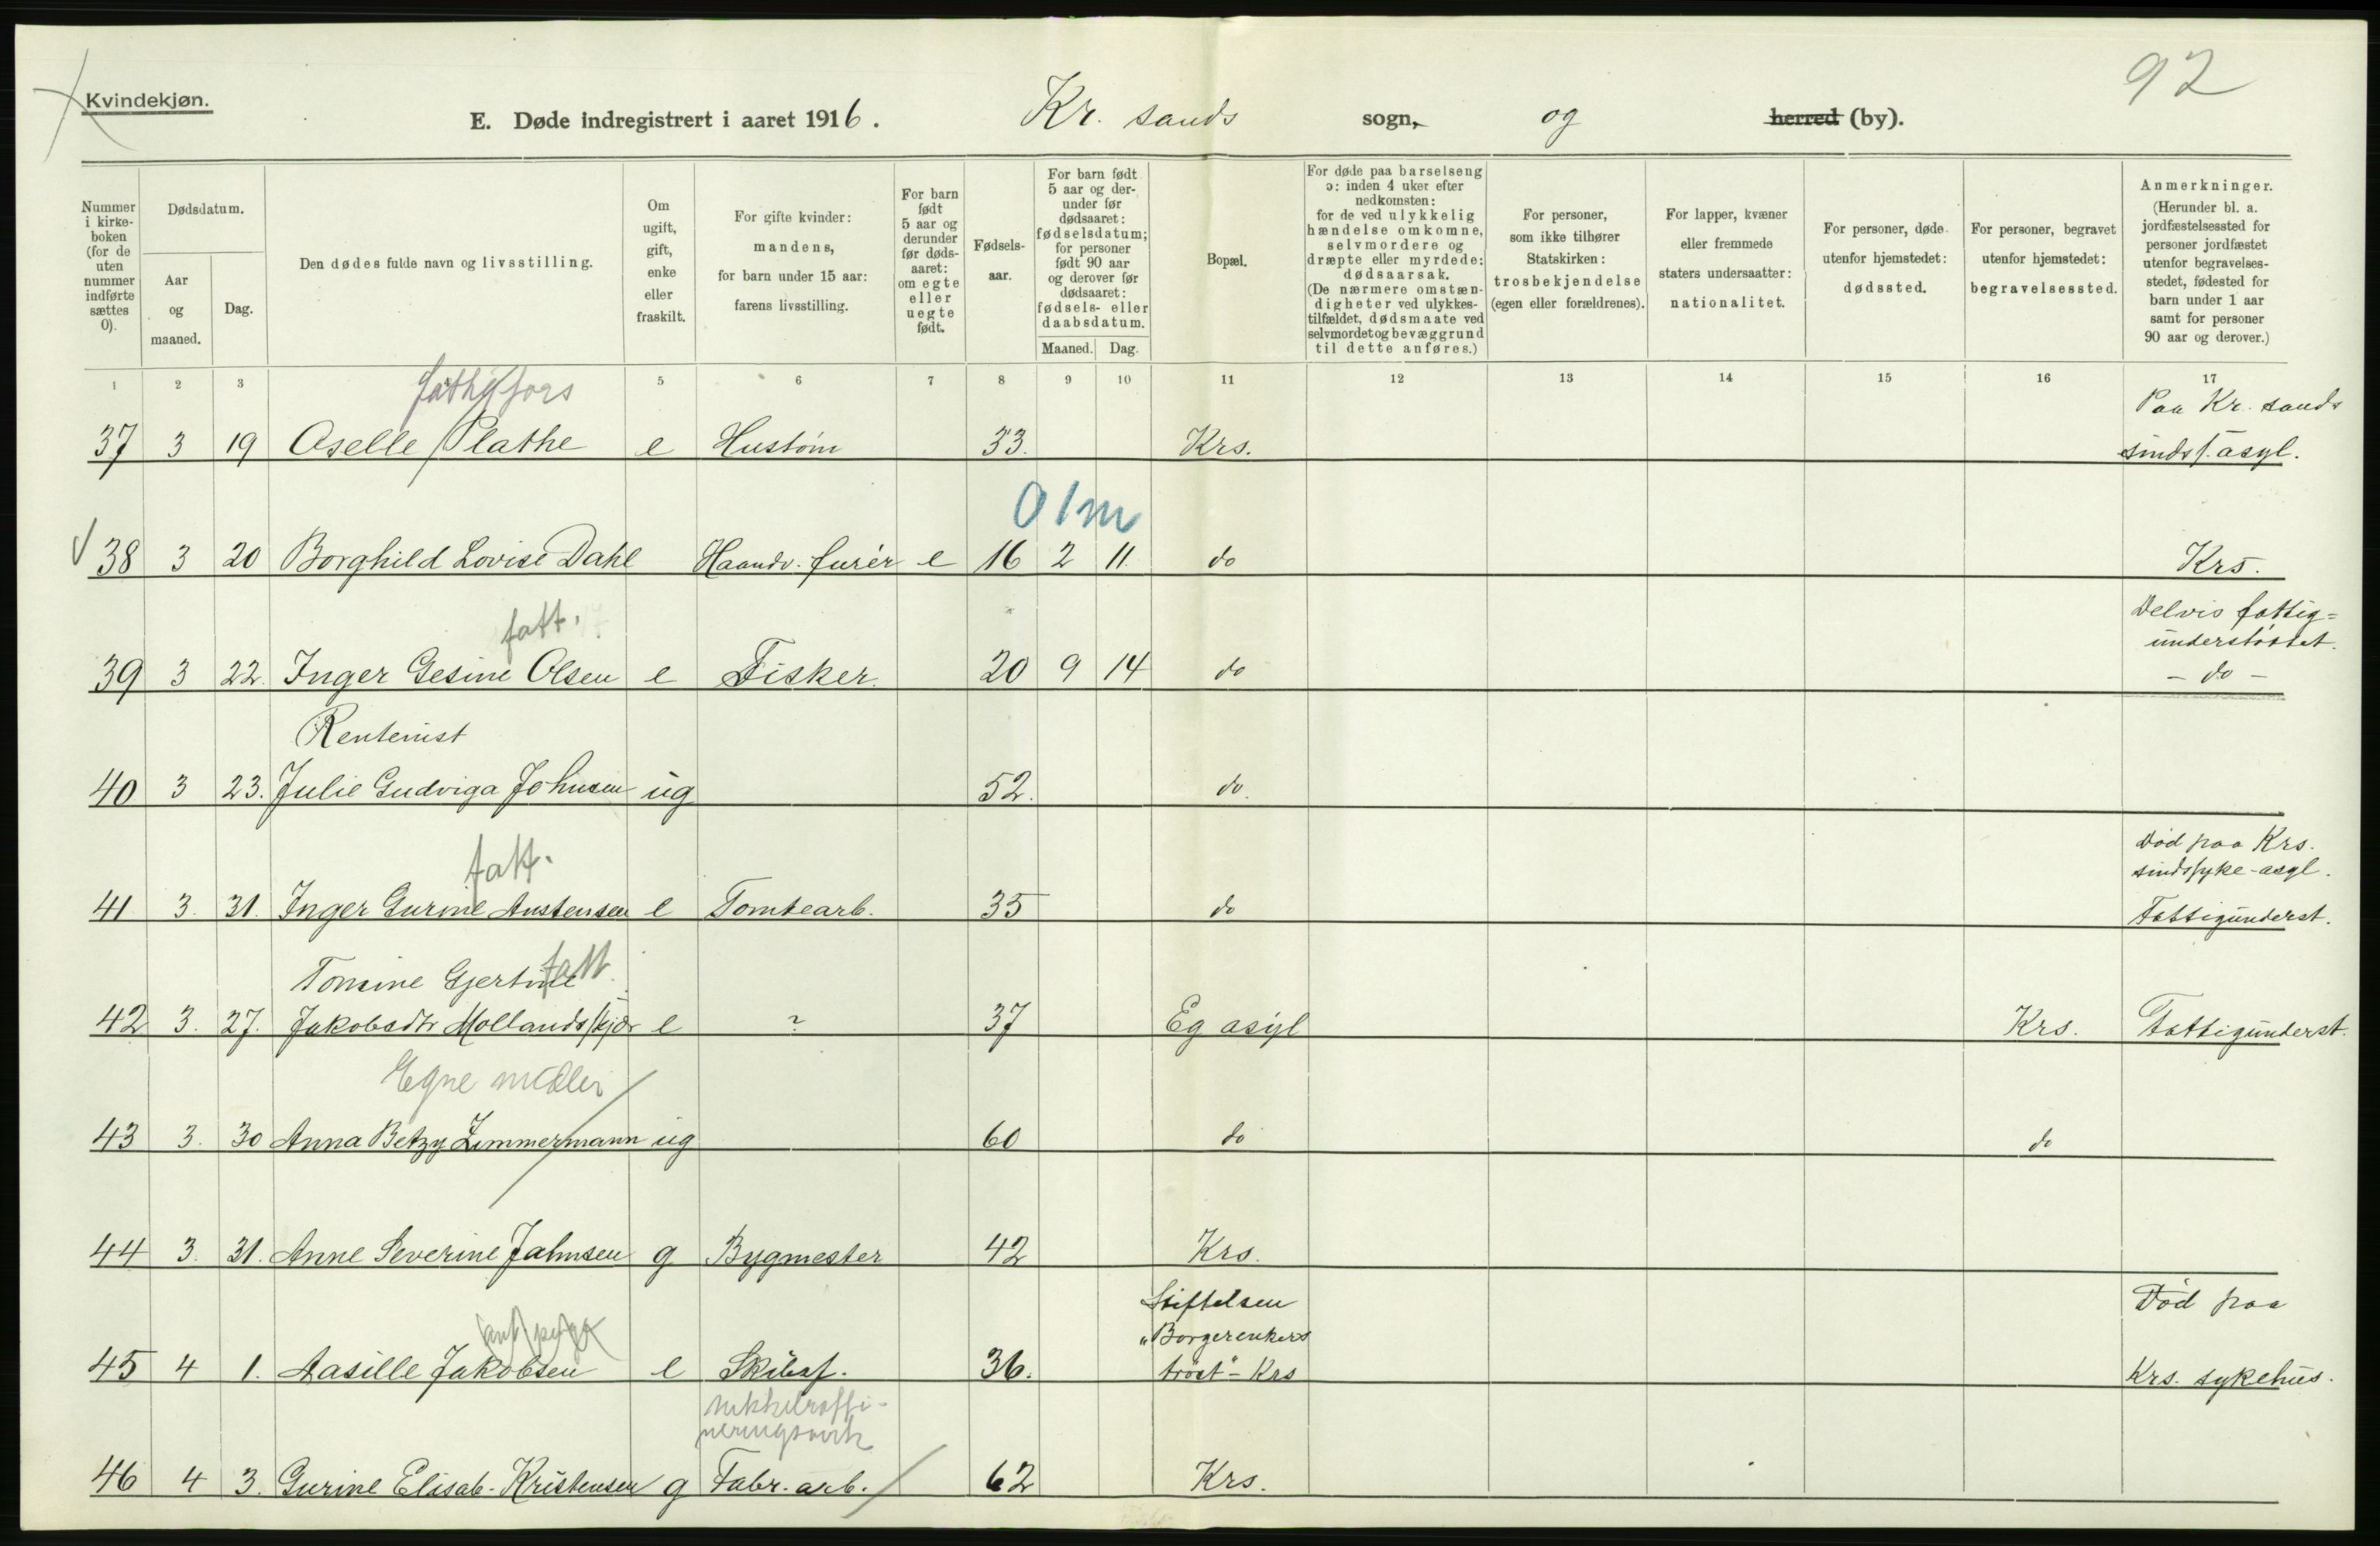 92
Kvindekjøn.
E. Døde indregistrert i aaret 1916. Kr. sands sogn, og herred (by).
Nummer i kirkeboken (for de uten nummer indførte sættes 0).
Dødsdatum.
Aar og maaned.
Dag.
Den dødes fulde navn og livsstilling.
Om ugift, gift, enke eller fraskilt.
For gifte kvinder: mandens, for barn under 15 aar: farens livsstilling.
For barn født 5 aar og derunder før dødsaaret: om egte eller uegte født.
Fødselsaar.
For barn født 5 aar og derunder før dødsaaret: fødselsdatum; for personer født 90 aar og derover før dødsaaret: fødsels- eller daabsdatum.
Maaned. Dag.
Bopæl.
For døde paa barselseng ɔ: inden 4 uker efter nedkomsten: for de ved ulykkelig hændelse omkomne, selvmordere og dræpte eller myrdede: dødsaarsak. (De nærmere omstændigheter ved ulykkestilfældet, dødsmaate ved selvmordet og bevæggrund til dette anføres.)
For personer, som ikke tilhører Statskirken: trosbekjendelse (egen eller forældrenes).
For lapper, kvæner eller fremmede staters undersaatter: nationalitet.
For personer, døde utenfor hjemstedet: dødssted.
For personer, begravet utenfor hjemstedet: begravelsessted.
Anmerkninger. (Herunder bl. a. jordfæstelsessted for personer jordfæstet utenfor begravelsesstedet, fødested for barn under 1 aar samt for personer 90 aar og derover.)
1 2 3 5 6 7 8 9 10 11 12 13 14 15 16 17
Paa Kr. sands
37 3 19 Oselle Plathe e Hustøm 33. Krs. sindss. asyl.
01m
38 3 20 Borghild Lovise Dahl Haandv. furér e 16 2 11. do Krs.
fatt. Delvis fattig=
understøttet.
39 3 22. Inger Gesine Olsen e Fisker. 20 9 14 do - do -
Rentenist
40 3 23. Julie Gudviga Johnsen ug 52. do.
fatt. Død paa Krs.
sindssyke-asyl.
41 3. 31. Inger Gurine Austensen e Tomtearb. 35 do Fattigunderst.
Tomine Gjertine fatt.
42 3. 27. Jakobsdtr Mollandsskjær e ? 37 Eg asyl Krs. Fattigunderst.
Egne midler
43 3. 30 Anna Betzy Zimmermann ug 60 do do
44 3. 31. Anne Severine Jahnsen g Bygmester 42 Krs.
Stiftelsen Død paa
"Borgerenkers
45 4 1. Aasille Jakobsen e Skibsf. 36. trøst" - Krs Krs. sykehus.
nikkelraffi-
neringsverk
46 4 3. Gurine Elisab. Kristensen g Fabr. arb. 62 Krs.